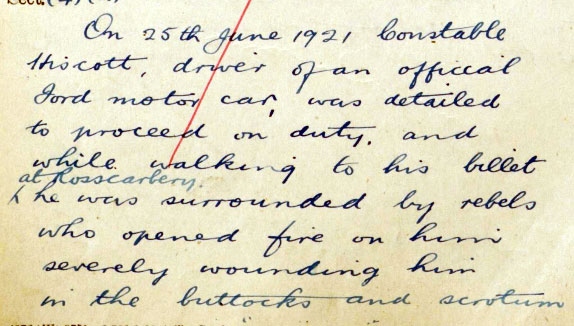 On 25th June 1921 Constable
Hiscott, driver of an official
Ford motor car, was detailed
to proceed on duty, and
while walking to his billet
at Rosscarbery.
he was surrounded by rebels
who opened fire on him
severely wounding him
in the buttocks and scrotum